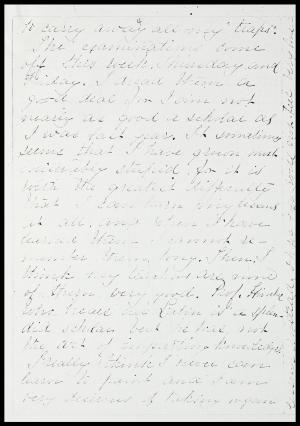 to carry away all my "traps".
The examinations come
off this week Thursday and
Friday. I dread them a
good deal for I am not
nearly as good a scholar as
I was last year. It sometimes
seems that I have grown most
miserably stupid for it is
with the greatest difficulty
that I can learn my lessons
at all, and when I have
learned them I cannot re-
member them long. Then I
think my teachers are none
of them very good. Prof.
who hears our Latin is a splen-
did scholar but he has not
the art of imparting knowledge.
I really think I never can
learn to paint and I am
very desirous of taking organ